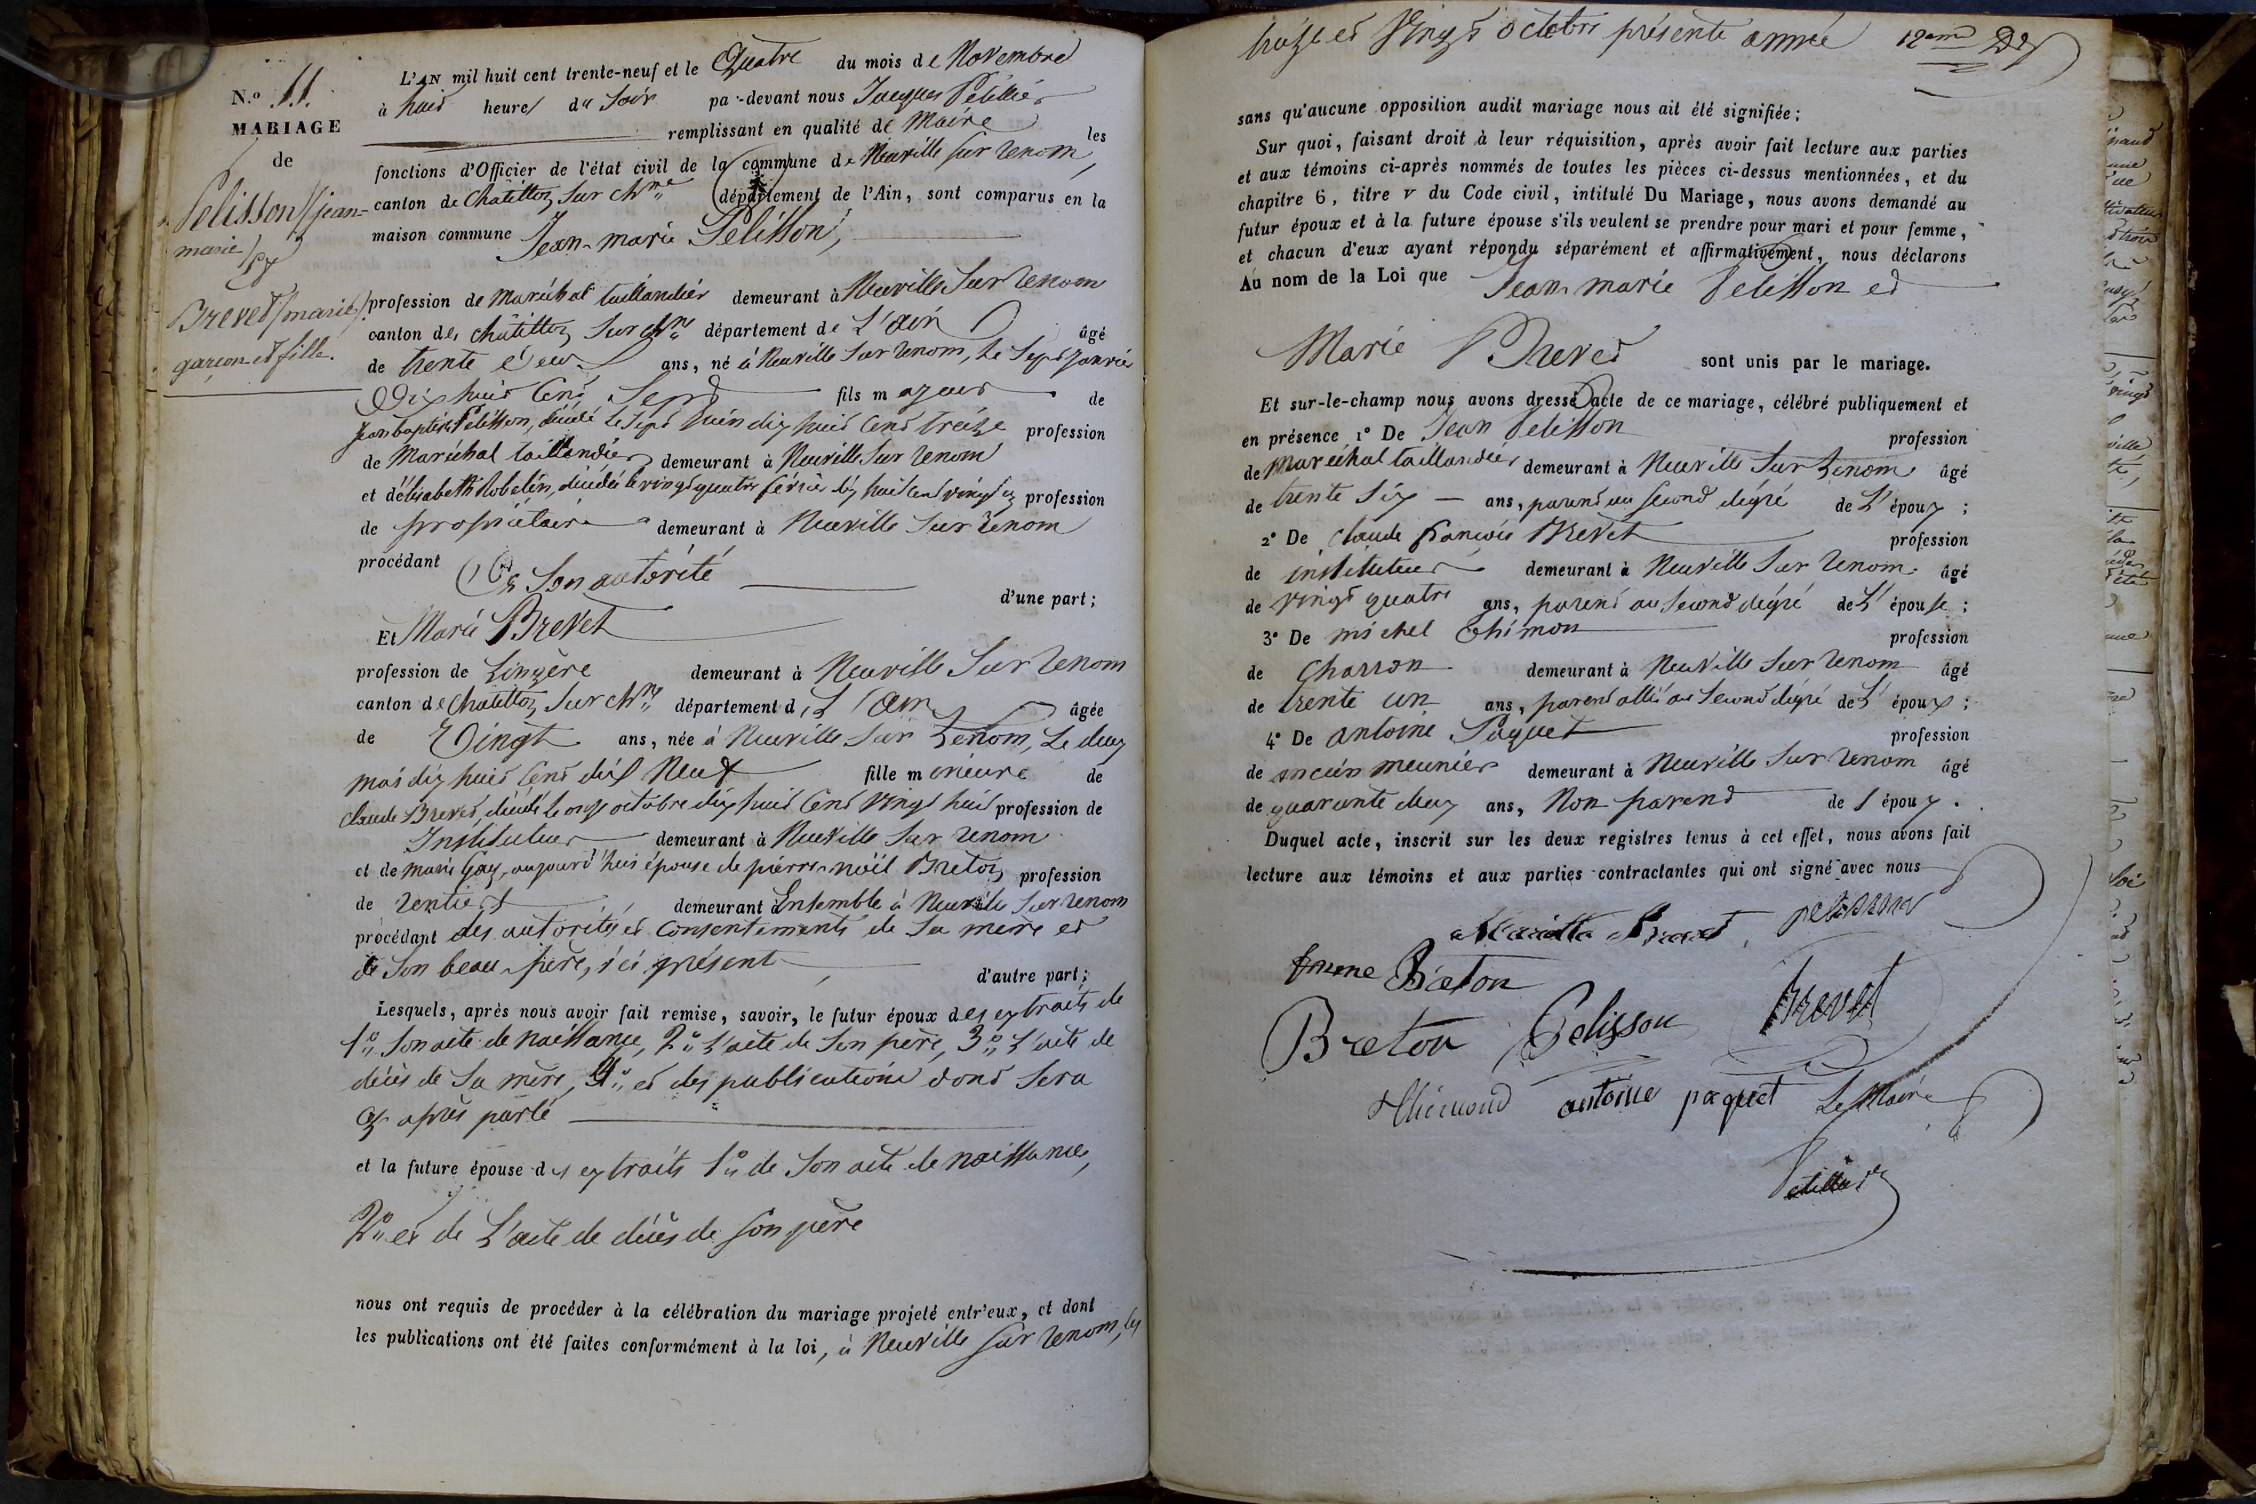 N.o 11.
MARIAGE
de
Pelisson (jean-
marie) et
Brevet (marie)
garçon et fille.
L'AN mil huit cent trente-neuf et le Quatre du mois de Novembre
à huit heures du Soir par-devant nous Jacques Pétillier
remplissant en qualité de Maire les
fonctions d'Officier de l'état civil de la commune de Neuville sur renom,
canton de Chatillon sur Chne département de l'Ain, sont comparus en la
maison commune Jean-marie Pelisson,
profession de Maréchal taillandier demeurant à Neuville Sur renom
canton de chatillon sur chne département de L'ain âgé
de trente deux ans, né à Neuville Sur renom, le Sept Janvier
Dix huit Cent Sept fils majeur de
Jean baptiste Pelisson, décédé le Sept Juin dix huit Cent treize profession
de Maréchal taillandier demeurant à Neuville Sur renom
et d'élisabeth Robelin, décédée le vingt quatre février dix huit cent vingt profession
de propriétaire demeurant à Neuville Sur renom
procédant De Son autorité
d'une part;
Et Marie Brevet
profession de Lingère demeurant à Neuville Sur renom
canton de Chatillon Sur chne département de L'ain âgée
de Vingt ans, née à Neuville Sur renom, Le deux
mai dix huit Cent dix Neuf fille mineure de
Claude Brevet, décédé le onze octobre dix huit Cent Vingt huit profession de
Instituteur demeurant à Neuville Sur renom
et de marie Gay, aujourd'huis épouse de pierre-noël Breton profession
de rentiers demeurant Ensemble à Neuville Sur renom
procédant des autorités et Consentements de Sa mère et
de Son beau-père, ici présent
d'autre part;
Lesquels, après nous avoir fait remise, savoir, le futur époux des extraits de
1o Son acte de Naissance, 2o L'acte de Son père, 3o L'acte de
décès de Sa mère, 4o et des publications dont Sera
cy après parlé
et la future épouse des extraits 1o de Son acte de naissance,
2o et de L'acte de décès de Son père
nous ont requis de procéder à la célébration du mariage projeté entr'eux, et dont
les publications ont été faites conformément à la loi, à Neuville Sur renom, les
treize et Vingt octobre présente année
sans qu'aucune opposition audit mariage nous ait été signifiée;
Sur quoi, faisant droit à leur réquisition, après avoir fait lecture aux parties
et aux témoins ci-après nommés de toutes les pièces ci-dessus mentionnées, et du
chapitre 6, titre v du Code civil, intitulé Du Mariage, nous avons demandé au
futur époux et à la future épouse s'ils veulent se prendre pour mari et pour femme,
et chacun d'eux ayant répondu séparément et affirmativement, nous déclarons
Au nom de la Loi que Jean-marie Pelisson et
Marie Brevet sont unis par le mariage.
Et sur-le-champ nous avons dressé acte de ce mariage, célébré publiquement et
en présence 1o De Jean Pelisson profession
de Maréchal taillandier demeurant à Neuville Sur renom âgé
de trente Six ans, parent au Second dégré de L'époux;
2o De Claude françois Brevet profession
de instituteur demeurant à Neuville Sur renom âgé
de vingt quatre ans, parent au Second dégré de L'épouse;
3o De michel Thimon profession
de Charron demeurant à Neuville Sur renom âgé
de trente un ans, parent allié au Second dégré de L'époux;
4o De antoine Paquet profession
de ancien meunier demeurant à Neuville Sur renom âgé
de quarante deux ans, Non parent de l'époux.
Duquel acte, inscrit sur les deux registres tenus à cet effet, nous avons fait
lecture aux témoins et aux parties contractantes qui ont signé avec nous
Mariette Brevet pelisson
fmme Breton
Breton Pelisson Brevet
Thimond antoine paquet Le Maire
Petillier